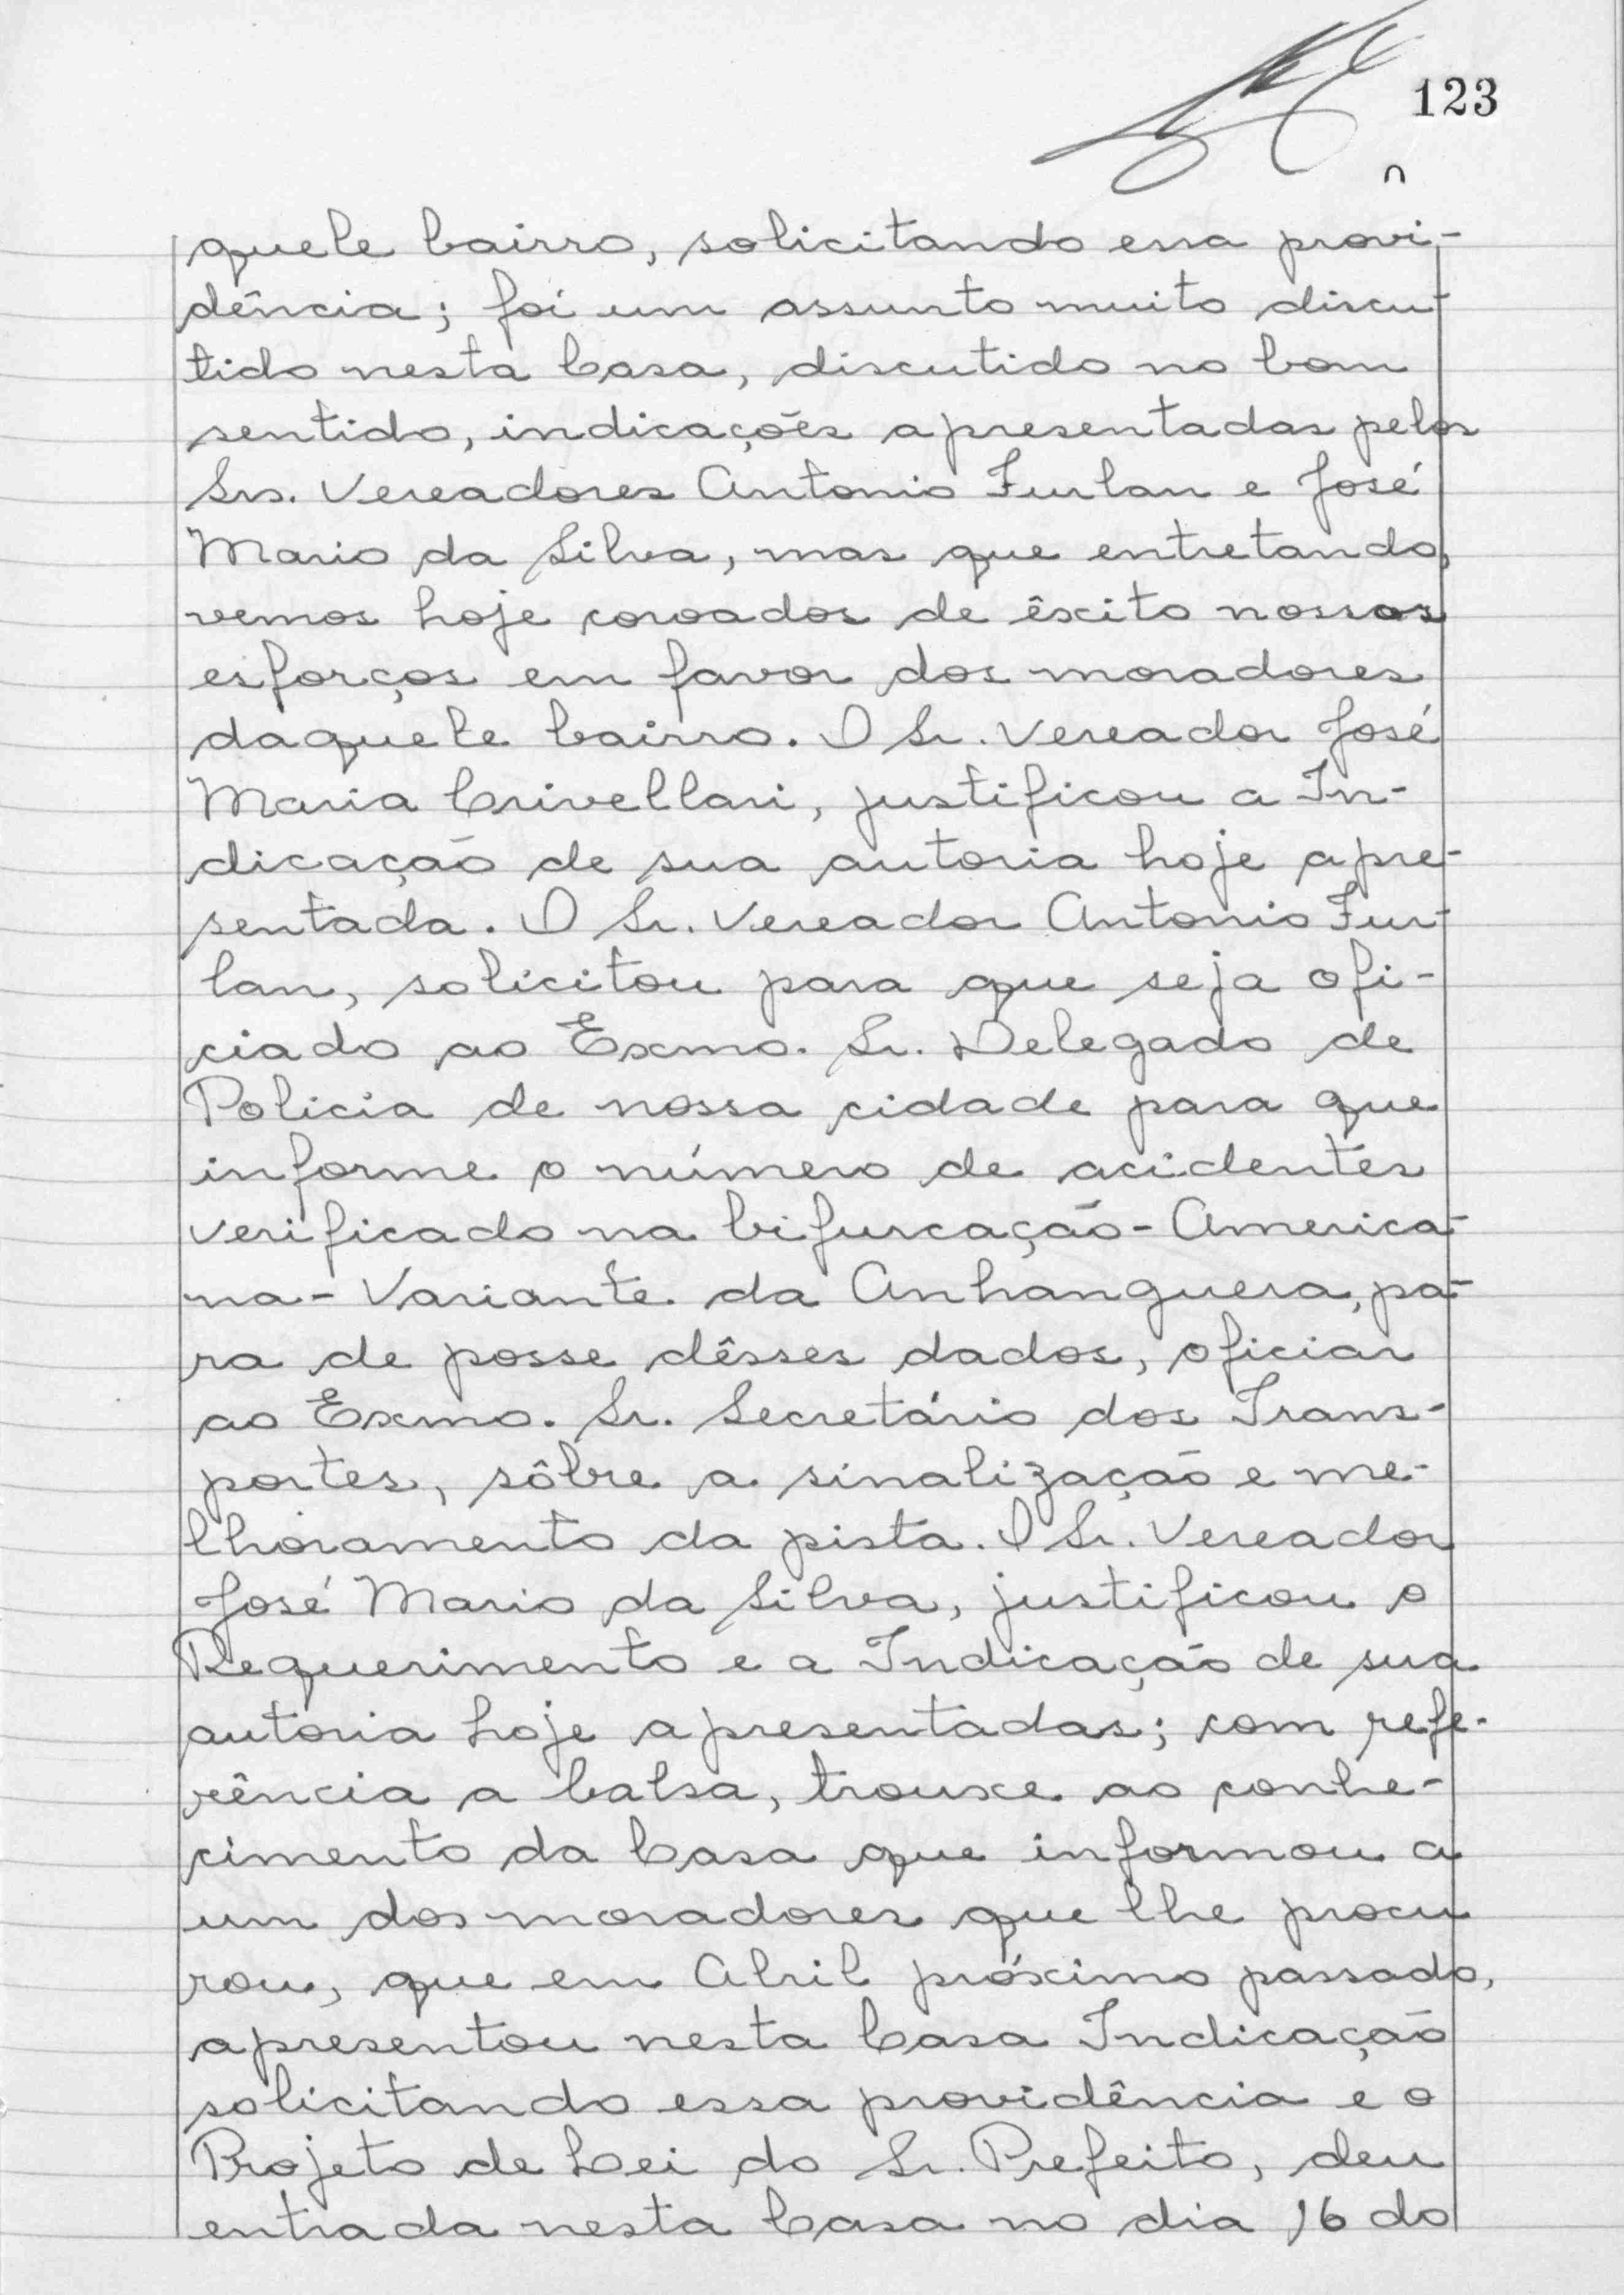 123
quele bairro, solicitando essa provi-
dência; foi um assunto muito discu-
tido nesta Casa, discutido no bom
sentido, indicações apresentadas pelos
Srs. Vereadores Antonio Furlan e José
Mario da Silva, mas que entretando,
vemos hoje coroados de êxito nossos
esforços em favor dos moradores
daquele bairro. O Sr. Vereador José
Maria Crivellari, justificou a In-
dicação de sua autoria hoje apre-
sentada. O Sr. Vereador Antonio Fur-
lan, solicitou para que seja ofi-
ciado ao Exmo. Sr. Delegado de
Policia de nossa cidade para que
informe o número de acidentes
verificado na bifurcação - America-
na - Variante da Anhanguera, pa-
ra de posse dêsses dados, oficiar
ao Exmo. Sr. Secretário dos Trans-
portes, sôbre a sinalização e me-
lhoramento da pista. O Sr. Vereador
José Mario da Silva, justificou o
Requerimento e a Indicação de sua
autoria hoje apresentadas; com refe-
rência a balsa, trouxe ao conhe-
cimento da Casa que informou a
um dos moradores que lhe procu
rou, que em Abril próximo passado,
apresentou nesta Casa Indicação
solicitando essa providência e o
Projeto de Lei do Sr. Prefeito, deu
entrada nesta Casa no dia 16 do